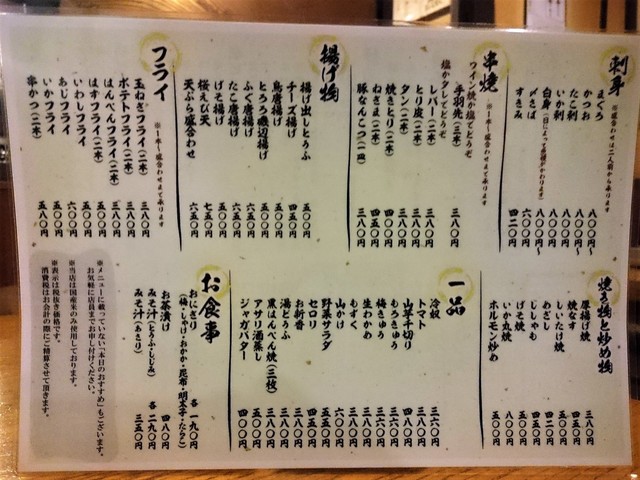 刺身
※盛合わせは二人前から承ります
まぐろ 八〇〇円～
かつお 八〇〇円～
たこ刺 八〇〇円
いか刺 八〇〇円
白身 (日によって鮮魚がかわります) 八〇〇円～
〆さば 六〇〇円
すきみ 四二〇円
串焼
※一本～盛合わせまで承ります
ワイン焼か塩でどうぞ
手羽先(三本) 三八〇円
塩かタレでどうぞ
レバー(二本) 三八〇円
とり皮(二本) 三八〇円
タン(二本) 三八〇円
焼きとり(二本) 四〇〇円
ねぎま(二本) 四五〇円
豚なんこつ(一皿) 三八〇円
揚げ物
揚げ出しとうふ 五〇〇円
チーズ揚げ 四五〇円
鳥唐揚げ 五〇〇円
とろろ磯辺揚げ 五〇〇円
ふぐ唐揚げ 六五〇円
たこ唐揚げ 六五〇円
げそ揚げ 五〇〇円
桜えび天 七五〇円
天ぷら盛合わせ 六五〇円
フライ
※一本～盛合わせまで承ります
玉ねぎフライ(二本) 三八〇円
ポテトフライ(二本) 三八〇円
はんぺんフライ(二本) 三八〇円
はすフライ(二本) 五〇〇円
いわしフライ 五〇〇円
あじフライ 六〇〇円
いかフライ 五〇〇円
串かつ(二本) 五八〇円
焼き物と炒め物
厚揚げ焼 三八〇円
焼なす 四五〇円
しいたけ焼 五〇〇円
めざし 四五〇円
ししゃも 四五〇円
げそ焼 五〇〇円
いか丸焼 八〇〇円
ホルモン炒め 五〇〇円
一品
冷奴 三六〇円
トマト 三六〇円
山芋千切り 四八〇円
もろきゅう 三八〇円
梅きゅう 三八〇円
生わかめ 三八〇円
もずく 三八〇円
山かけ 六〇〇円
野菜サラダ 五五〇円
セロリ 四五〇円
お新香 三八〇円
湯どうふ 三八〇円
黒はんぺん焼(三枚) 三八〇円
アサリ酒蒸し 五〇〇円
ジャガバター 四〇〇円
お食事
おにぎり 各 一九〇円
(梅・しゃけ・おかか・昆布・明太子・たらこ)
お茶漬け 四八〇円
みそ汁(とうふ・しじみ) 各 二九〇円
みそ汁(あさり) 三五〇円
※メニューに載っていない「本日のおすすめ」もございます。
お気軽に店員までお申し付けください。
※当店は国産米のみ使用しております。
※表示は税抜き価格です。
消費税はお会計の際にご精算させて頂きます。